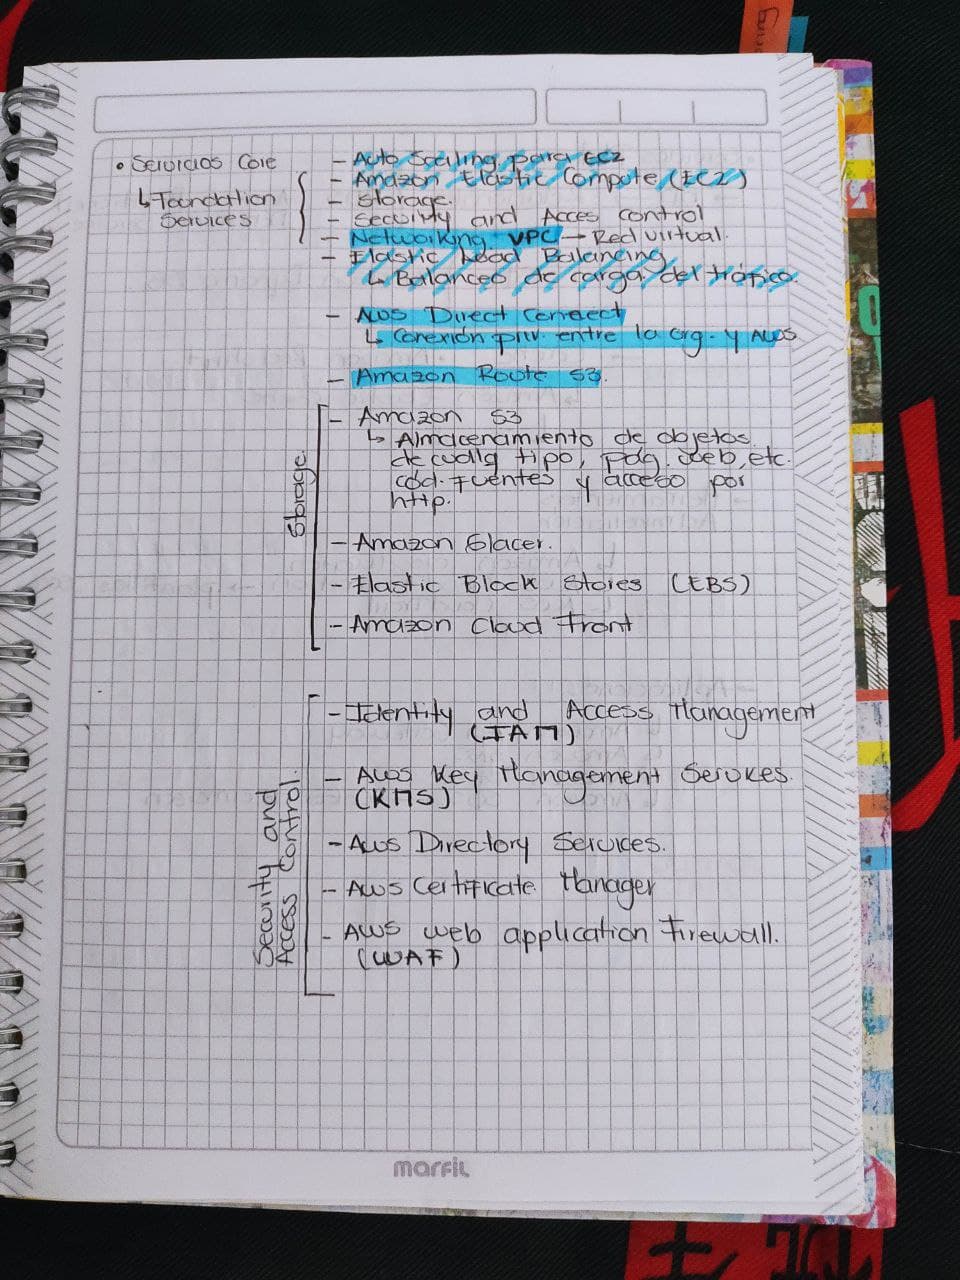 • Servicios Core
↳ Foundation
Services
- Auto Scaling para EC2
- Amazon Elastic Compute (EC2)
- Storage.
- Security and Acces control
- Networking VPC → Red virtual.
- Elastic Load Balancing
↳ Balanceo de carga del tráfico.
- AWS Direct Connect
↳ Conexión priv. entre la org. y AWS
- Amazon Route 53.
Storage
- Amazon S3
↳ Almacenamiento de objetos
de cualq tipo, pág. web, etc.
cód. fuentes y acceso por
http.
- Amazon Glacer.
- Elastic Block Stores (EBS)
- Amazon Cloud Front
Security and
Access Control.
- Identity and Access Management
(IAM)
- AWS Key Management Services.
(KMS)
- AWS Directory Services.
- AWS Certificate Manager
- AWS web application Firewall.
(WAF)
marfil